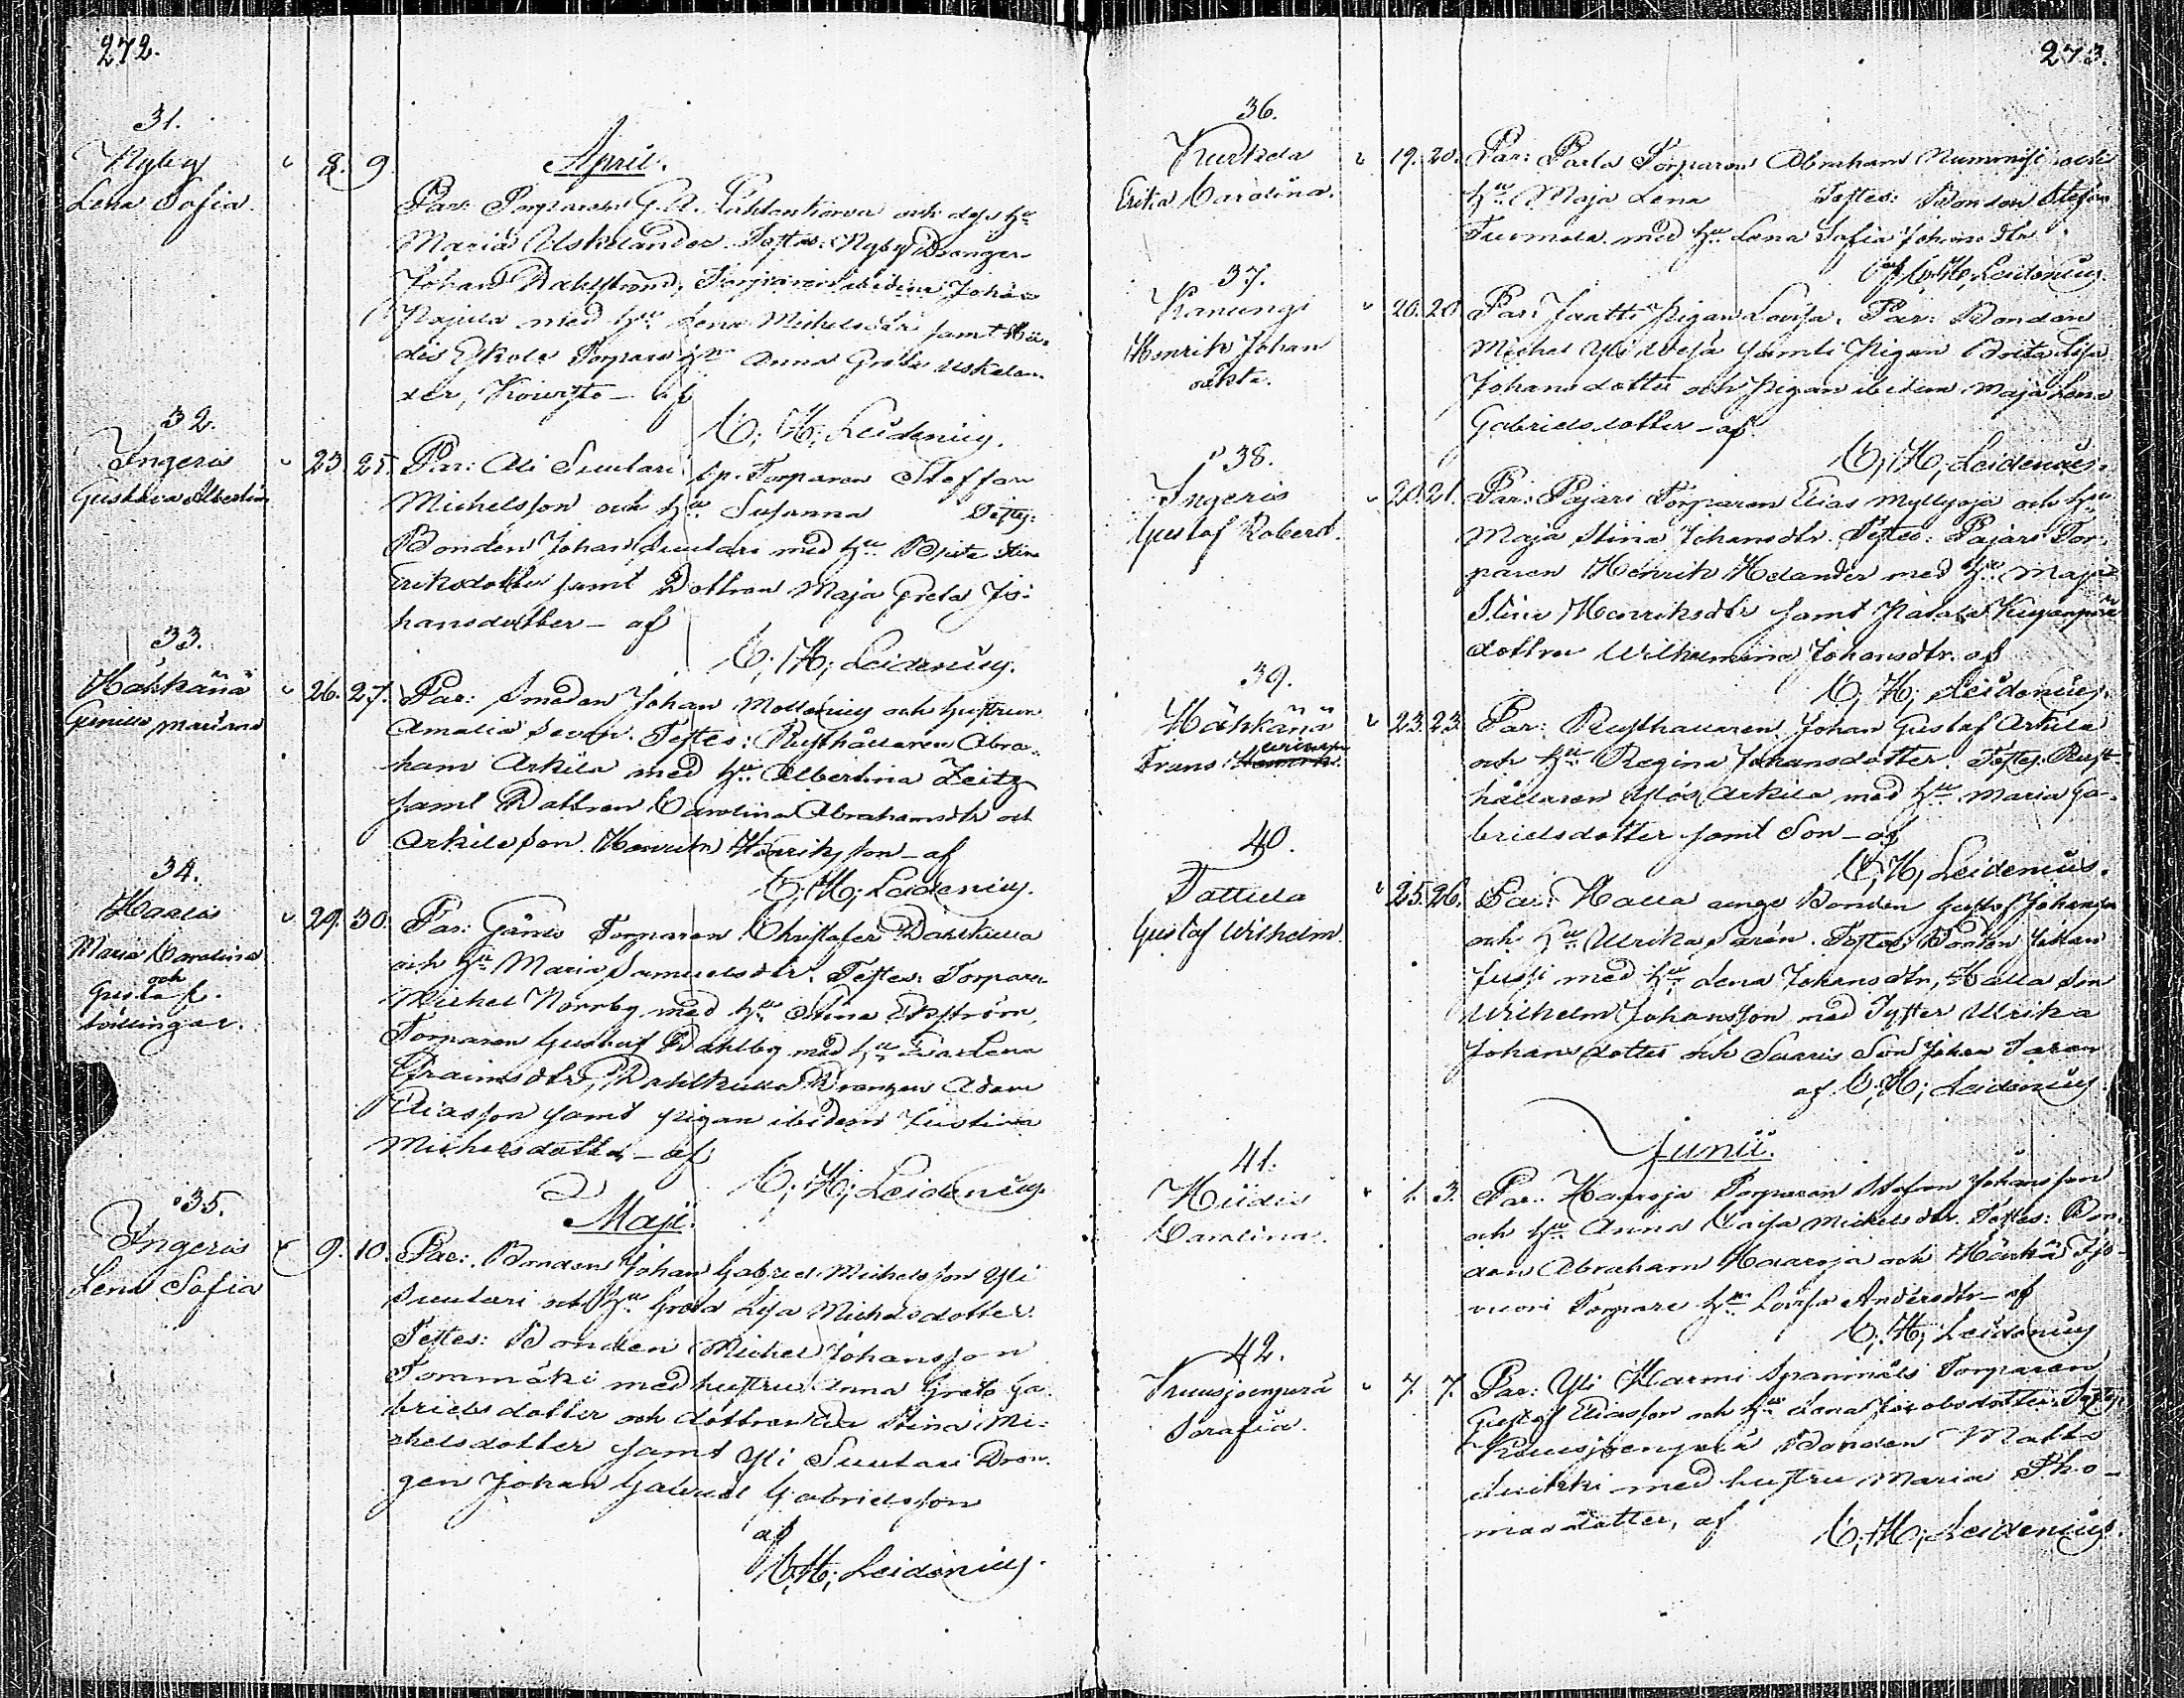 272.
31.
Nyby
Lena Sofia.
8. 9.
April.
Par: Torparen G. A. och dess hu
Maria Uskelander. Testes: Nyby Drängen
Johan Dahlström, Torparen ibidem Johan
med hu Lena Michelsdtr samt
Torpare hu Anna Greta Uskelan-
der, Kouvisto - af
C; H; Leidenius.
32.
Ingeris
Gustava Albertina
23. 25.
Par: Ali Suutari Sp. Torparen Steffan
Michelsson och hu Susanna Testes:
Bonden Johan Suutari med hu Brita Stin
Eriksdotter samt Dottren Maja Greta Jo-
hansdotter - af
C; H; Leidenius.
33.
Häkkänä
26. 27.
Par: Smeden Johan och hustrun
Amalia Testes: Rusthållaren Abra-
ham Arkila med hu Albertina Zeitz
samt Dottren Carolina Abrahamsdtr och
Arkila son Henrik Henriksson - af
C; H; Leidenius.
34.
Haalis
Maria Carolina
och
Gustaf.
tvillingar.
29. 30.
Par: Torparen Christofer Dahlkulla
och hu Maria Samuelsdtr. Testes: Torparen
Michel Norrby med hu Stina Ekström,
Torparen Gustaf Dahlby med hu Eva Lena
Efraimsdtr, Dahlkulla Drängen Adam
Eliasson samt pigan ibidem Justina
Michelsdotter - af
C; H; Leidenius.
Maji.
35.
Ingeris
Lena Sofia
9. 10.
Par: Bonden Johan Gabriel Michelsson Yli
Suutari och hu Greta Lisa Michelsdotter.
Testes: Bonden Michel Johansson
Tommäki med hustru Anna Greta Ga-
brielsdotter och dottren Eva Stina Mi-
chelsdotter samt Yli Suutari Drän-
gen Johan Gabriel Gabrielsson
af
C; H; Leidenius.
273.
36.
Kurkela
Erika Carolina.
19. 20.
Par: Parla Torparen Abraham Nummisi och
hu Maja Lena Testes: Bonden Stefan
Tuomola med hu Lena Sofia Johansdtr
af C; H; Leidenius.
37.
Kanungi
Henrik Johan
oäkta.
20. 20.
Par: Jaatti Pigan Lovisa. Par: Bonden
Michel Yli samt Pigan Brita Lisa
Johansdotter och pigan ibidem Maja Lena
Gabrielsdotter - af
C; H; Leidenius.
38.
Ingeris
Gustaf Robert.
20. 21.
Par: Pajari Torparen Elias Myllyoja och hu
Maja Stina Johansdtr. Testes: Pajari Tor-
paren Henrik Helander med hu Maja
Stina Henriksdtr samt
dottren Wilhelmina Johansdtr. af
C; H; Leidenius.
39.
Häkkänä
Frans
23. 23.
Par: Rusthållaren Johan Gustaf Arkila
och hu Regina Johansdotter. Testes: Rust-
hållaren Arkila med hu Maria Ga-
brielsdotter samt Son - af
C; H; Leidenius.
40.
Tattula
Gustaf Wilhelm.
25. 26.
Par: Halla unge Bonden Gustaf Johansson
och hu Ulrika Sarén. Testes: Bonden Johan
Jussi med hu Lena Johansdtr, Halla Son
Wilhelm Johansson med Syster Ulrika
Johansdotter och Son Johan Saren
af C; H; Leidenius.
Junii.
41.
Hiidis
Carolina.
1. 3.
Par: Haaroja Torparen Stefan Johansson
och hu Anna Caisa Michelsdtr. Testes: Bon-
den Abraham Haaroja och Iso-
vuori Torpare hu Lovisa Andersdtr - af
C; H; Leidenius
42.
Kruusjoenperä
Serafia.
7. 7.
Par: Yli Harmi Torparen
Gustaf Eliasson och hu Lena Jacobsdotter. Testes:
Kruusjoenperä Bonden Matts
med hustru Maria Tho-
masdotter, af
C; H; Leidenius.